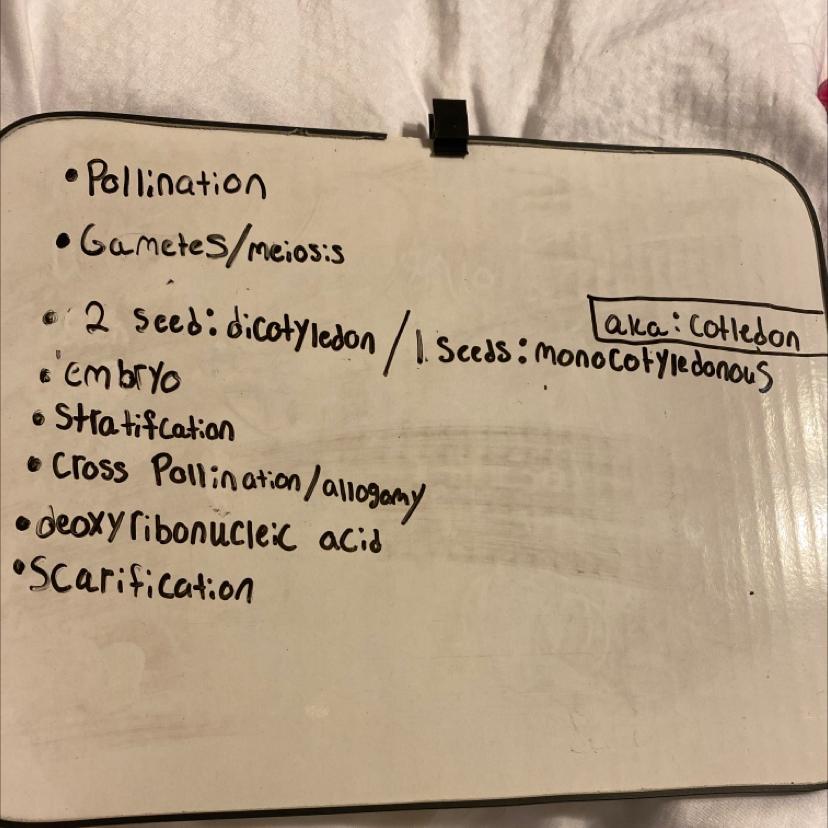 • Pollination
• Gametes/meiosis
• 2 seed: dicotyledon / 1 seeds: monocotyledonous
aka: cotledon
• embryo
• Stratifcation
• Cross Pollination/allogamy
• deoxyribonucleic acid
• Scarification